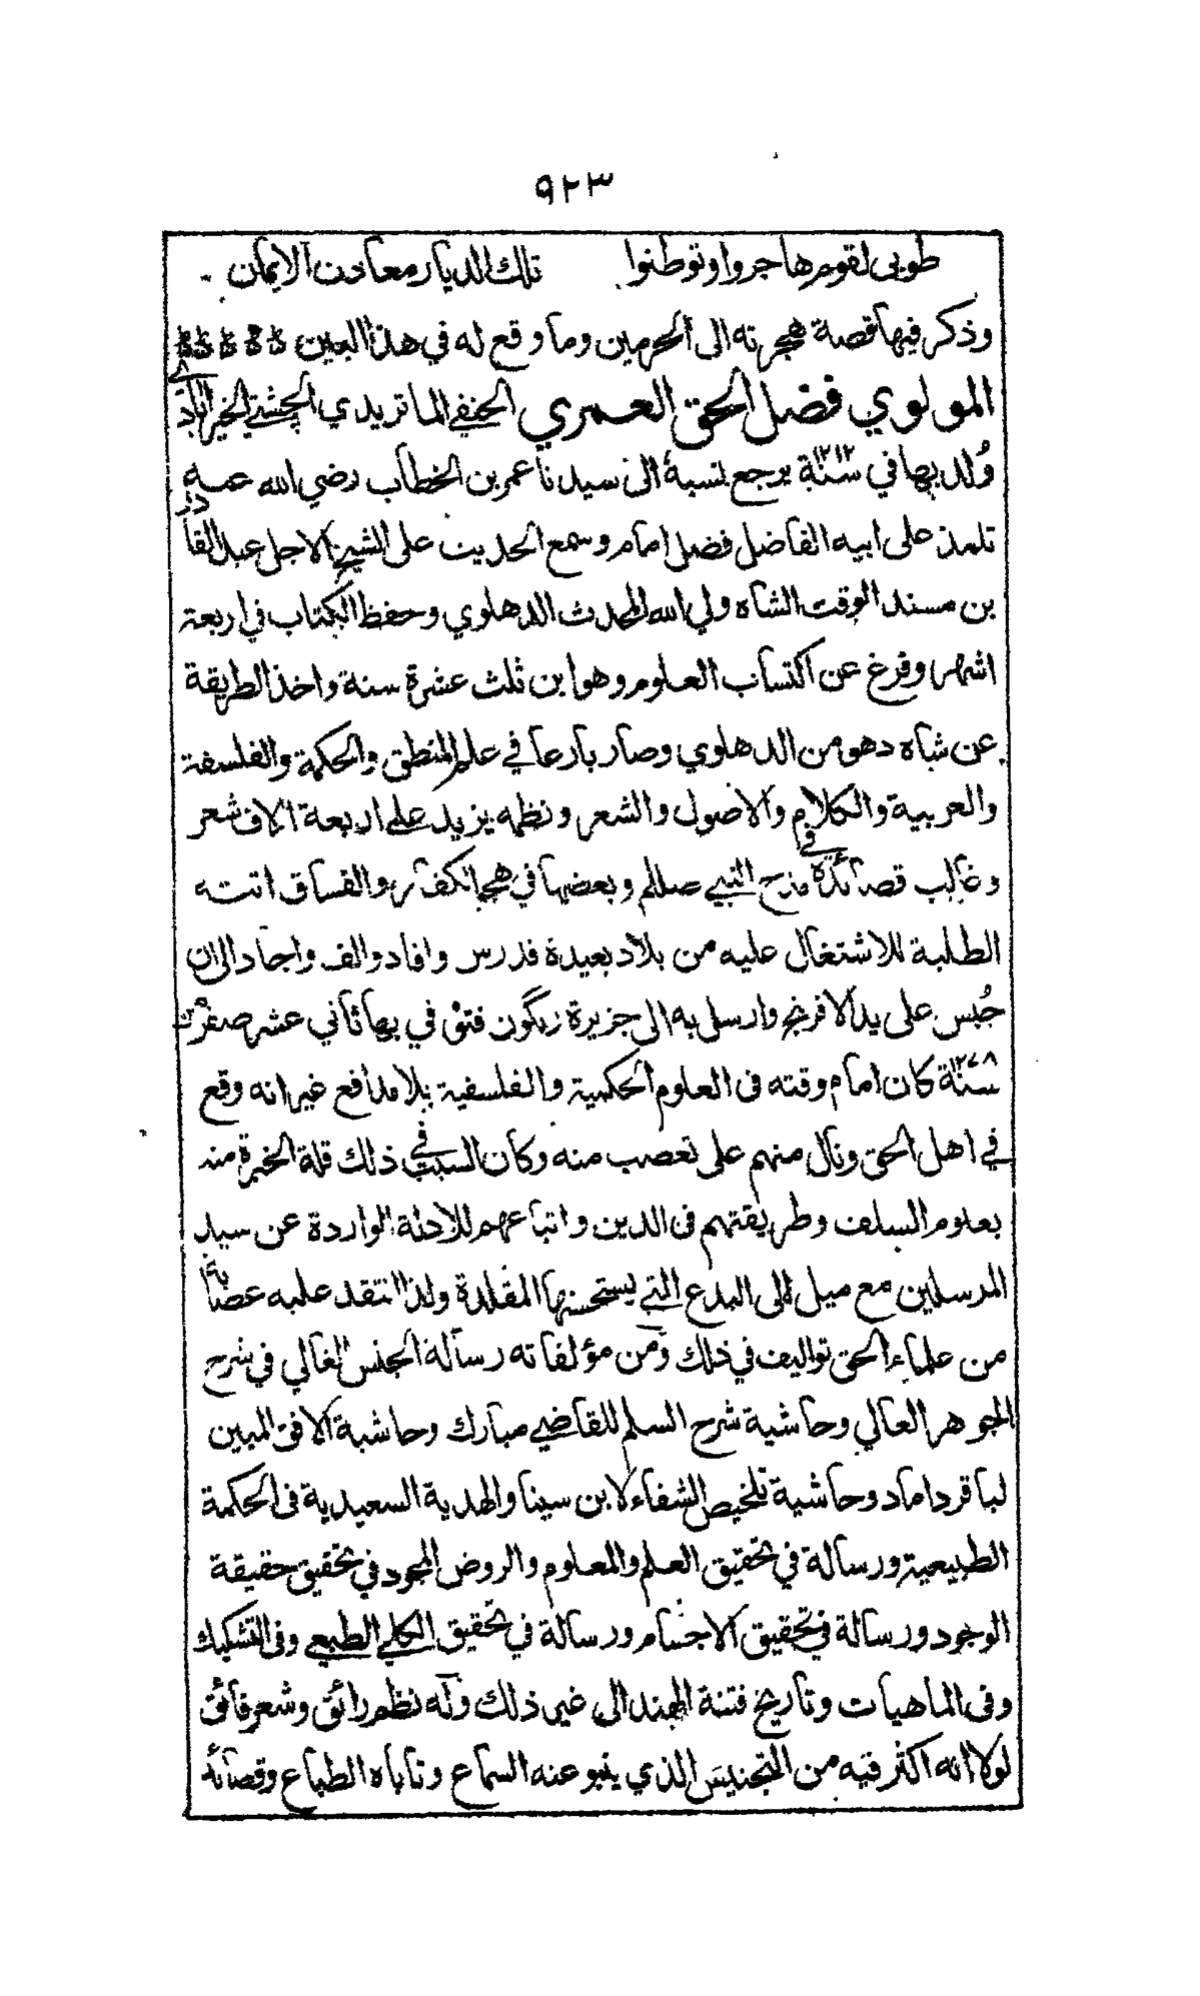 ٩٢٣
طوبى لقوم هاجروا وتوطنوا تلك الديار معادن الايمان
وذكر فيها قصة هجرته الى الحرمين وما وقع له في هذا البين
المولوي فضل الحق العمري الحنفي الماتريدي الچشتي الخيرآبادي
وُلد بها في سنة ١٢١٢ يرجع نسبه الى سيدنا عمر بن الخطاب رضي الله عنه
تلمذ على ابيه الفاضل فضل امام وسمع الحديث على الشيخ الاجل عبد القادر
بن مسند الوقت الشاه ولي الله المحدث الدهلوي وحفظ الكتاب في اربعة
اشهر وفرغ عن اكتساب العلوم وهو ابن ثلث عشرة سنة واخذ الطريقة
عن شاه دهومن الدهلوي وصار بارعا في علم المنطق والحكمة والفلسفة
والعربية والكلام والاصول والشعر ونظمه يزيد على اربعة الاف شعر
وغالب قصائده في مدح النبي صللم وبعضها في هجو الكفار والفساق اتته
الطلبة للاشتغال عليه من بلاد بعيدة فدرس وافاد والف واجاد الى ان
حُبس على يد الافرنج وارسل به الى جزيرة رنگون فتوفي بها ثاني عشر صفر من
سنة ١٢٧٨ كان امام وقته في العلوم الحكمية والفلسفية بلا مدافع غير انه وقع
في اهل الحق ونال منهم على تعصب منه وكان السبب في ذلك قلة الخبرة منه
بعلوم السلف وطريقتهم في الدين واتباعهم للادلة الواردة عن سيد
المرسلين مع ميل الى البدع التي يستحسنها المقلدة ولذا انتقد عليه عصابة
من علماء الحق تواليف في ذلك ومن مؤلفاته رسالة الجنس الغالي في شرح
الجوهر العالي وحاشية شرح السلم للقاضي مبارك وحاشية الافق المبين
لباقر داماد وحاشية تلخيص الشفاء لابن سينا والهدية السعيدية في الحكمة
الطبيعية ورسالة في تحقيق العلم والمعلوم والروض المجود في تحقيق حقيقة
الوجود ورسالة في تحقيق الاجسام ورسالة في تحقيق الكلي الطبعي وفي التشكيك
وفي الماهيات وتاريخ فتنة الهند الى غير ذلك وله نظم رائق وشعر فائق
لولا انه اكثر فيه من التجنيس الذي ينبو عنه السماع وتاباه الطباع وقصائد